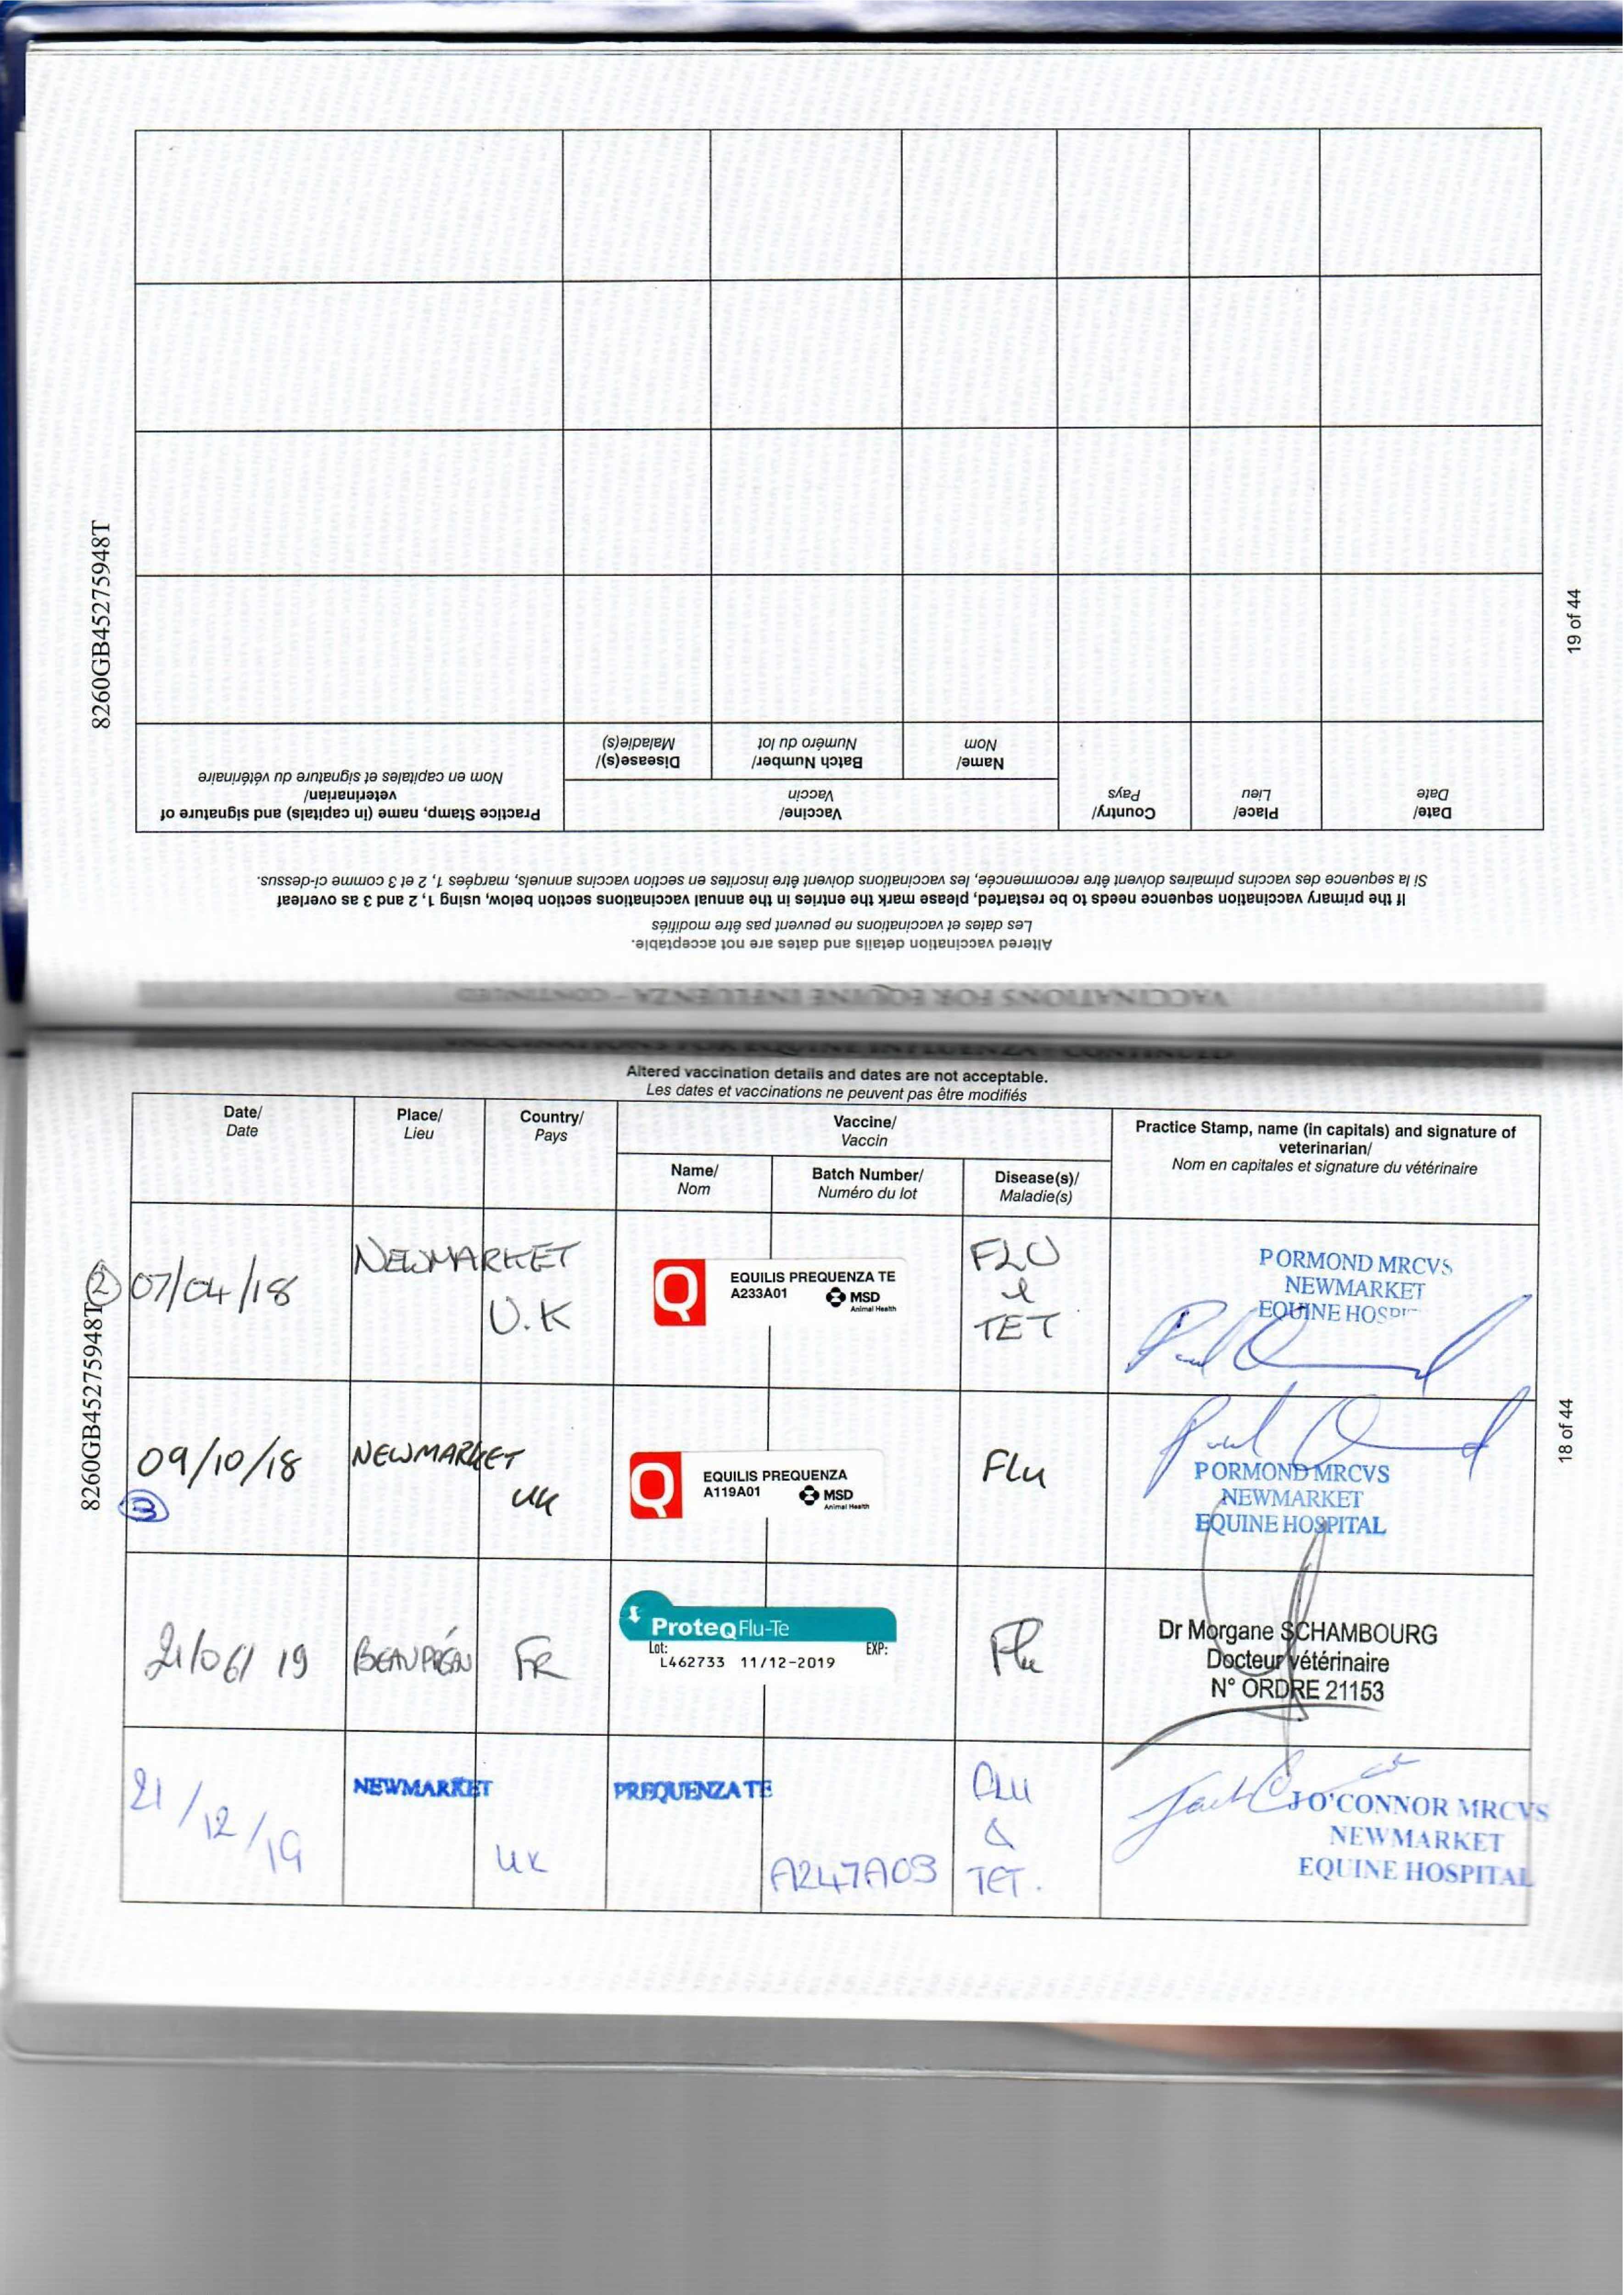 8260GB45275948T
19 of 44
VACCINATIONS FOR EQUINE INFLUENZA – CONTINUED
Altered vaccination details and dates are not acceptable.
Les dates et vaccinations ne peuvent pas être modifiés
If the primary vaccination sequence needs to be restarted, please mark the entries in the annual vaccinations section below, using 1, 2 and 3 as overleaf
Si la sequence des vaccins primaires doivent être recommencée, les vaccinations doivent être inscrites en section vaccins annuels, marqées 1, 2 et 3 comme ci-dessus.
Date/
Date
Place/
Lieu
Country/
Pays
Vaccine/
Vaccin
Name/
Nom
Batch Number/
Numéro du lot
Disease(s)/
Maladie(s)
Practice Stamp, name (in capitals) and signature of
veterinarian/
Nom en capitales et signature du vétérinaire
VACCINATIONS FOR EQUINE INFLUENZA – CONTINUED
Altered vaccination details and dates are not acceptable.
Les dates et vaccinations ne peuvent pas être modifiés
Date/
Date
Place/
Lieu
Country/
Pays
Vaccine/
Vaccin
Name/
Nom
Batch Number/
Numéro du lot
Disease(s)/
Maladie(s)
Practice Stamp, name (in capitals) and signature of
veterinarian/
Nom en capitales et signature du vétérinaire
8260GB45275948T
18 of 44
2 07/04/18
NEWMARKET
U.K
Q
EQUILIS PREQUENZA TE
A233A01
MSD
Animal Health
FLU
&
TET
P ORMOND MRCVS
NEWMARKET
EQUINE HOSPI
09/10/18
3
NEWMARKET
UK
Q
EQUILIS PREQUENZA
A119A01
MSD
Animal Health
Flu
P ORMOND MRCVS
NEWMARKET
EQUINE HOSPITAL
21/06/19
FR
ProteqFlu-Te
Lot: EXP:
L462733 11/12-2019
Flu
Dr Morgane SCHAMBOURG
Docteur vétérinaire
N° ORDRE 21153
21/12/19
NEWMARKET
UK
PREQUENZA TE
A247A03
FLU
&
TET.
J O'CONNOR MRCVS
NEWMARKET
EQUINE HOSPITAL